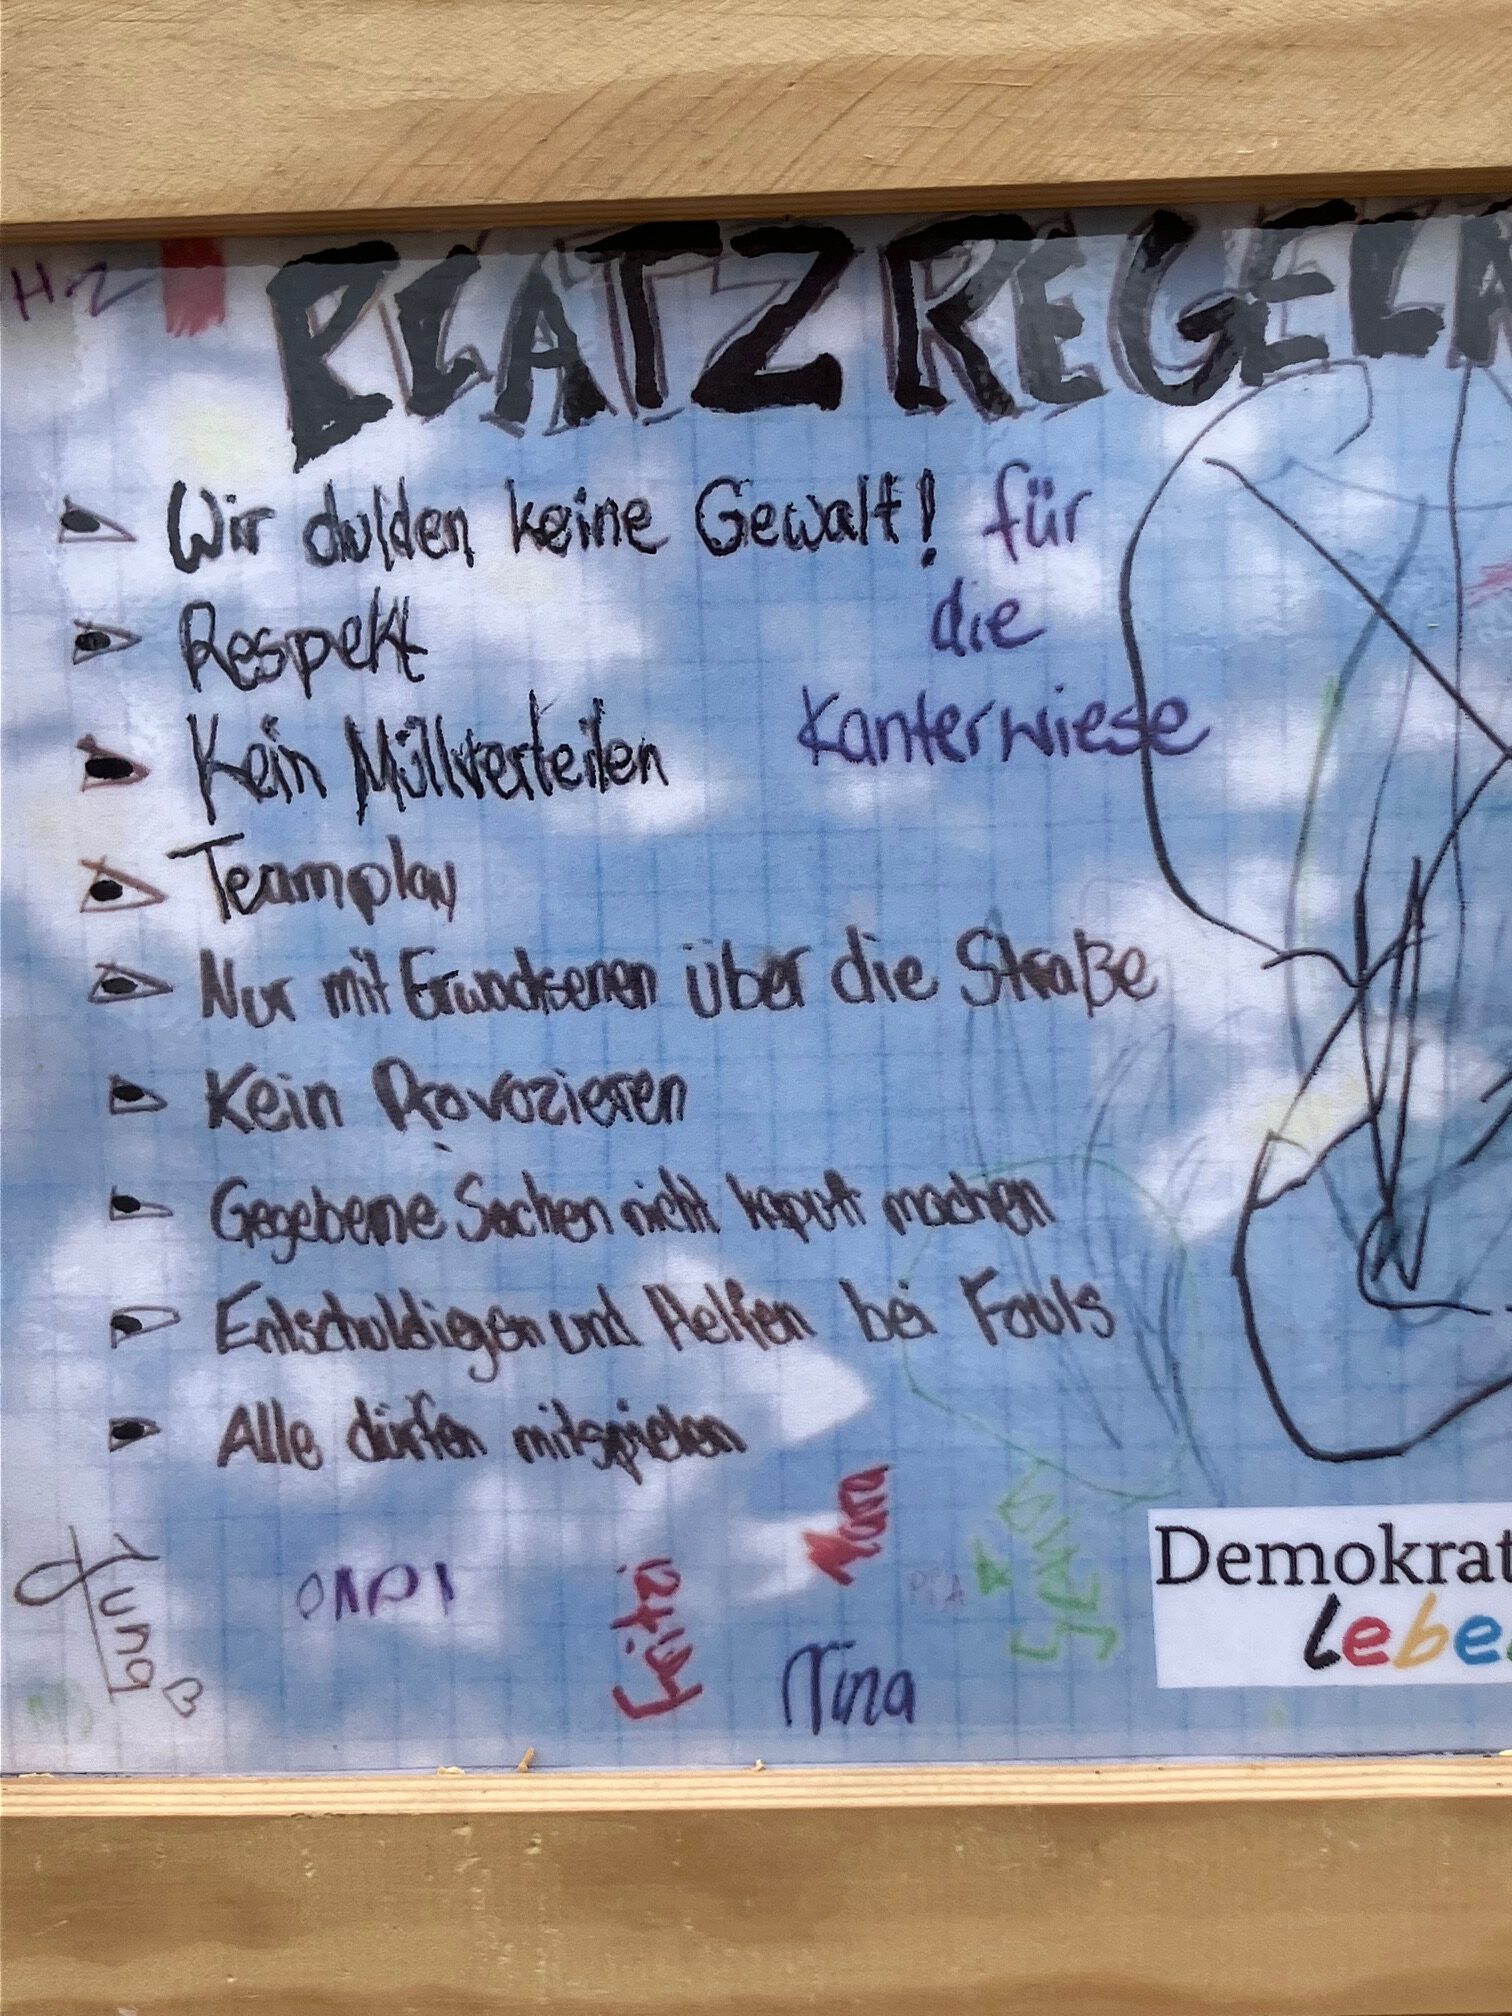 PLATZREGELN
Wir dulden keine Gewalt! für
Respekt die
Kein Müllverteilen Kanterwiese
Teamplay
Nur mit Erwachsenen über die Straße
Kein Provozieren
Gegebene Sachen nicht kaputt machen
Entschuldigen und Helfen bei Fouls
Alle dürfen mitspielen
Mara
Nina
Demokrat
Lebe